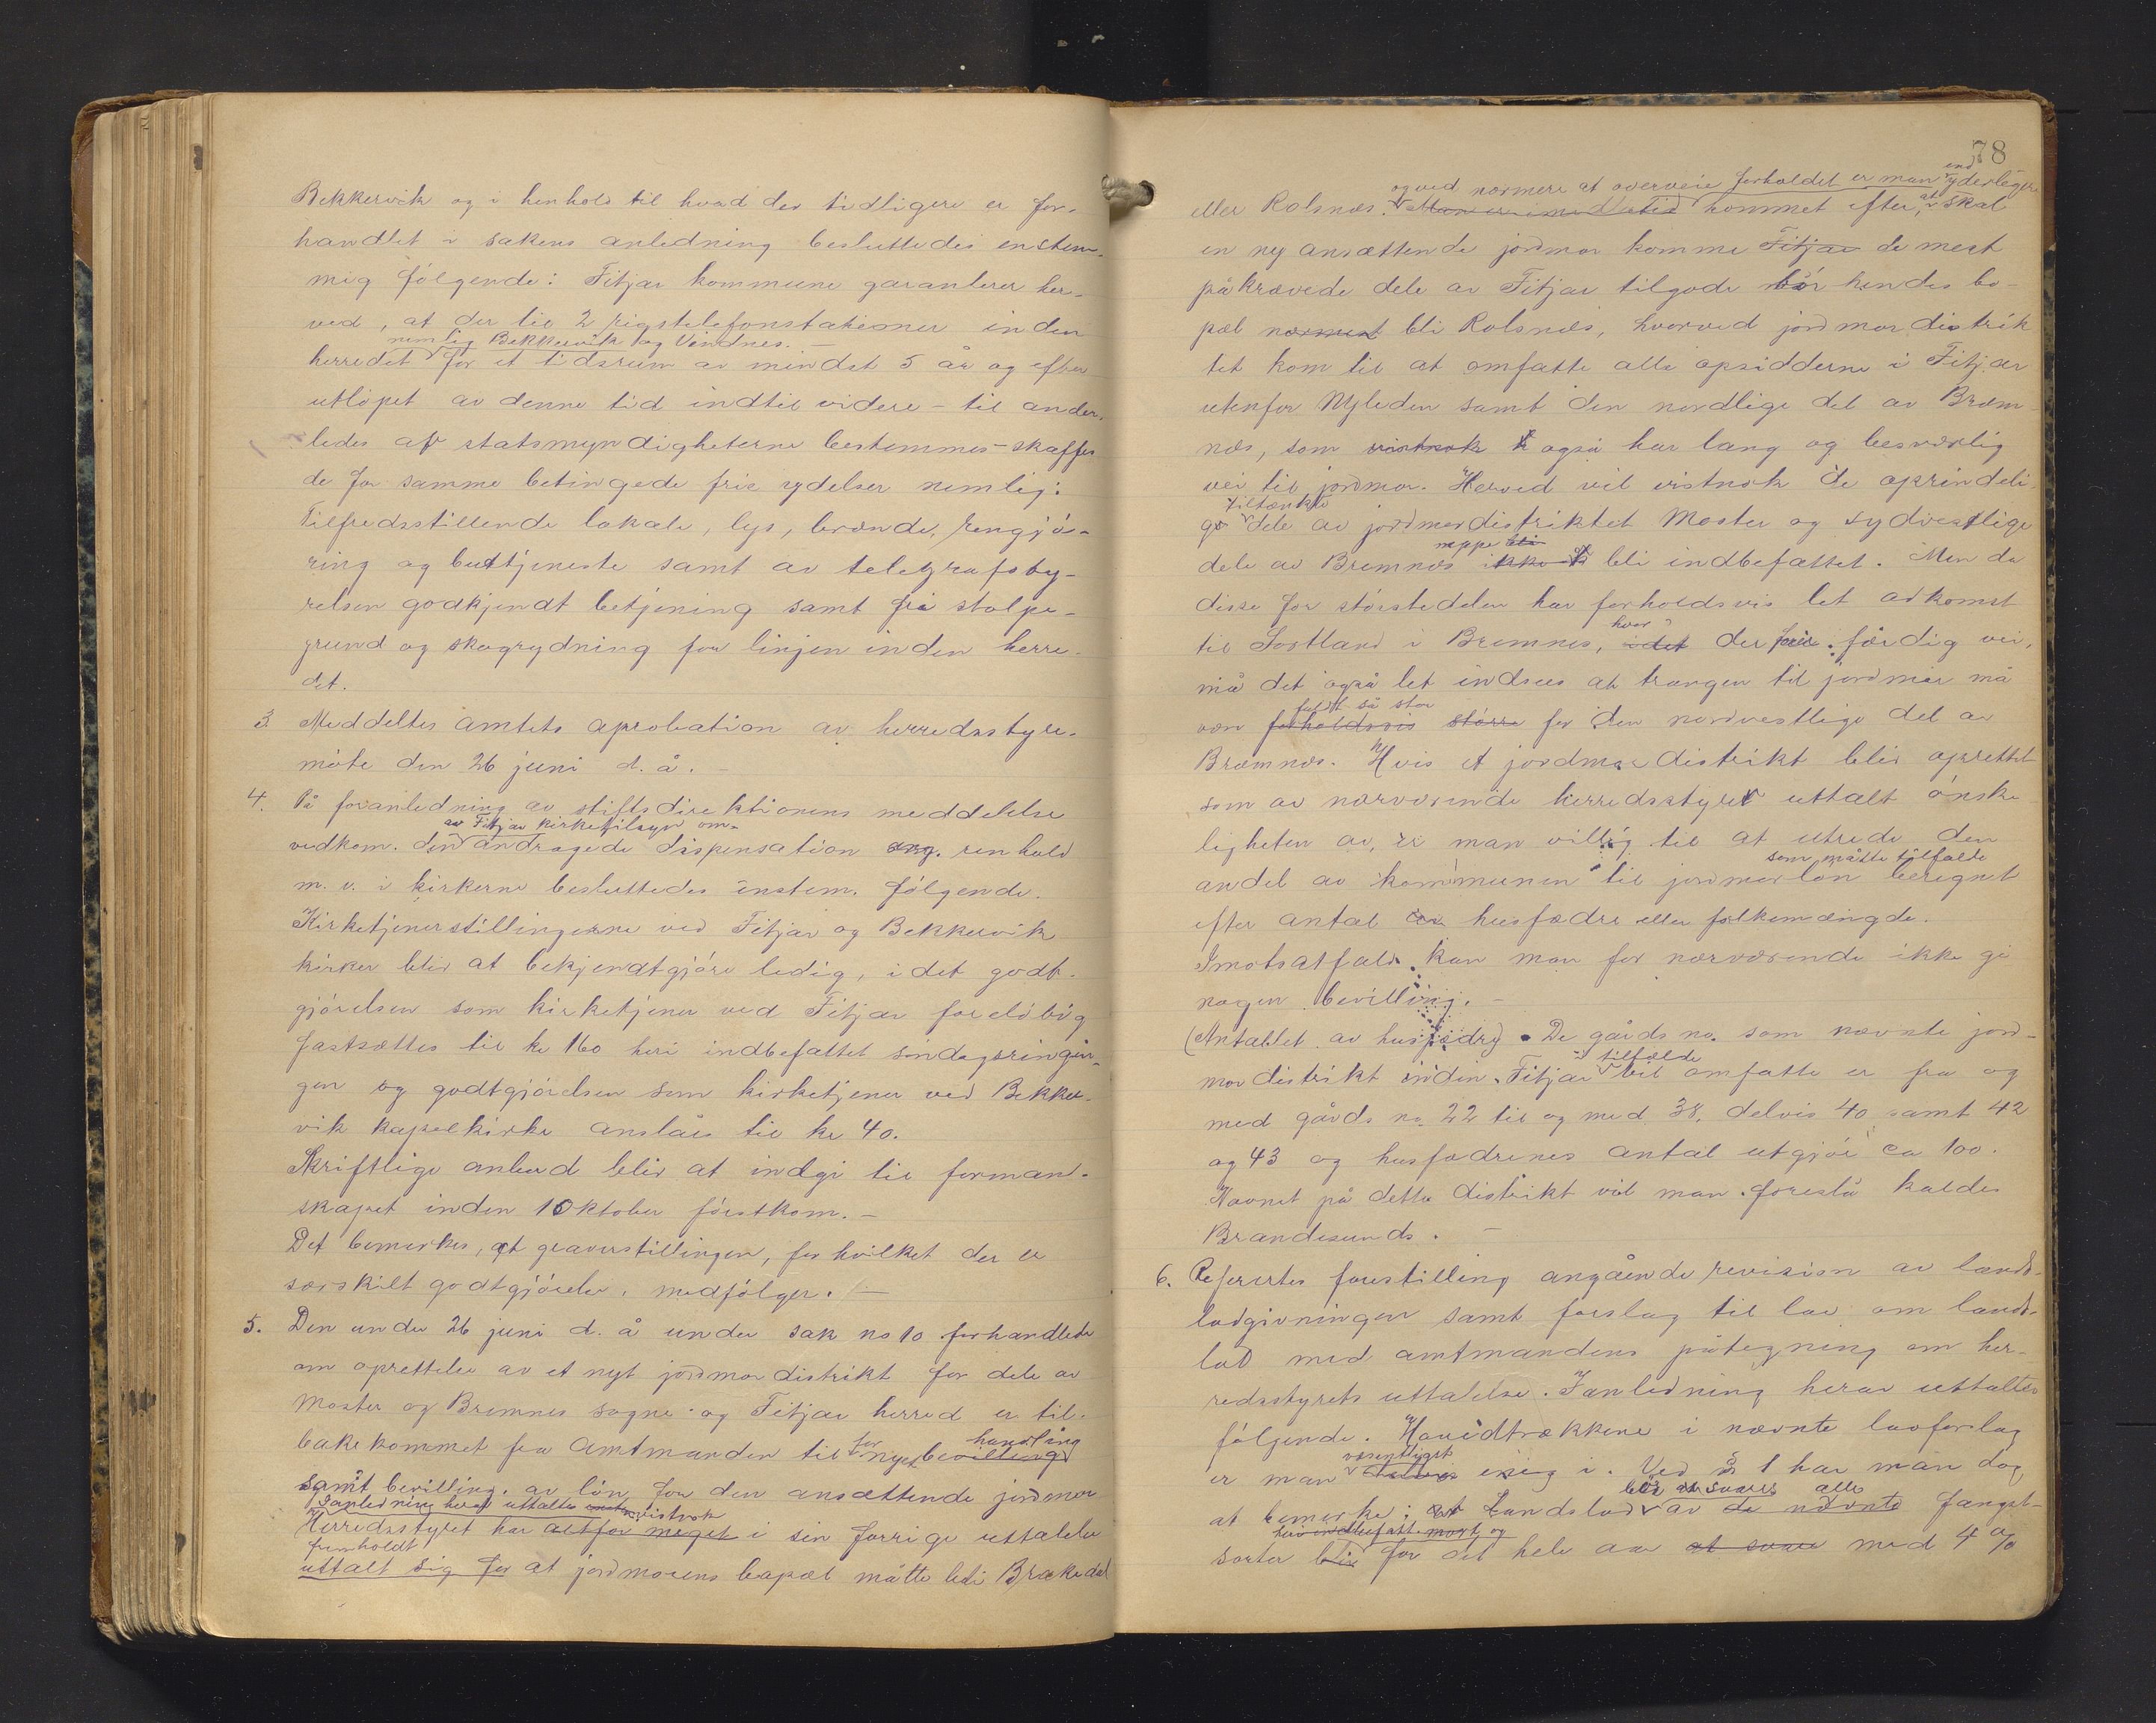 Bekkervik og i henhold til hvad der tidligere er for-
handlet i sakens anledning besluttedes enstem-
mig følgende: Fitjar kommune garanterer her-
ved, at der til 2 rigstelefonstationer inden
nemlig Bekkervik og Vindnes. —
herredet for et tidsrum av mindst 5 år og efter
utløpet av denne tid indtil videre – til ander-
ledes af statsmyndigheterne bestemmes – skaffes
de for samme betingede frie ydelser nemlig:
Tilfredsstillende lokale, lys, brænde, rengjø-
ring og budtjeneste samt av telegrafsty-
relsen godkjendt betjening samt fri stolpe-
grund og skogrydning for linjen inden herre-
det.
3 Meddeltes amtets aprobation av herredsstyre-
møte den 26 juni d. å. —
4. På foranledning av stiftsdirektionens meddelelse
av Fitjar kirketilsyn om-
vedkom. den andragede dispensation ang. renhold
m. v. i kirkerne besluttedes enstem. følgende.
Kirketjenerstillingerne ved Fitjar og Bekkervik
kirker blir at bekjendtgjøre ledig, idet godt-
gjørelsen som kirketjener ved Fitjar foreløbig
fastsættes til kr 160 heri indbefattet søndagsringin-
gen og godtgjørelsen som kirketjener ved Bekker-
vik kapelkirke anslåes til kr 40.
Skriftlige anbud blir at indgi til formand-
skapet inden 1 Oktober førstkom. —
Det bemerkes, at graverstillingen, for hvilket der er
særskilt godtgjørelse, medfølger. —
5. Den under 26 juni d. å under sak no 10 forhandlede
om oprettelse av et nyt jordmordistrikt for dele av
Moster og Bremnes sogne og Fitjar herred er til-
bakekommet fra Amtmanden til for nyet bevilling handling
samt bevilling. av løn for den ansættende jordmor
I anledning herav uttaltes vistnok
Herredsstyret har altfor meget i sin forrige uttalelse
fremholdt
uttalt sig for at jordmorens bopæl måtte bli Brækedal
78
og ved nærmere at overveie forholdet er man end yderligere
eller Rolsnes. Man er imidlertid kommet efter, at skal
en ny ansættende jordmor komme Fitjar de mest
påkrævede dele av Fitjar tilgode bør hendes bo-
pæl nærmest bli Rolsnæs, hvorved jordmordistrik
tet kom til at omfatte alle opsidderne i Fitjar
utenfor Nyleden samt den nordlige del av Brem-
næs, som vistnok også har lang og besværlig
vei til jordmor. Herved vil vistnok de oprindeli-
tiltænkte
ge dele av jordmordistriktet Moster og sydvestlige
neppe bli
dele av Bremnæs ikke bli indbefattet. Men da
disse for størstedelen har forholdsvis let adkomst
hvor
til Sortland i Bremnes, idet der er færdig vei,
må det også let indsees at trangen til jordmor må
fuldt så stor
være forholdsvis større for den nordvestlige del av
Bræmnes. Hvis et jordmordistrikt blir oprettet
som av nærværende herredsstyret uttalt ønske-
ligheten av, er man villig til at utrede den
som måtte tilfalde
andel av kommunen til jordmorløn beregnet
efter antal av husfædre eller folkemængde.
I motsat fald kan man for nærværende ikke gi
nogen bevilling. —
(Antallet av husfædre) De gårds no. som nævnte jord-
i tilfælde
mordistrikt inden Fitjar vil omfatte er fra og
med gårds no 22 til og med 38, delvis 40 samt 42
og 43 og husfædrenes antal utgjør ca 100.
Navnet på dette distrikt vil man foreslå kaldes
Brandesunds. —
6. Refertes forestilling angående revision av lands-
lodgivningen samt forslag til lov om lands-
lod med amtmandens påtegning om her-
redsstyrets uttalelse. I anledning herav uttaltes
følgende. Hovedtrækkene i nævnte lovforslag
væsentligst
er man enig i. Ved § 1 har man dog
blir at svares alle
at bemerke: at Landslod av de nævnte fangst-
heri indbefatt. mort og
sorter blir for det hele aar at svare med 4 %